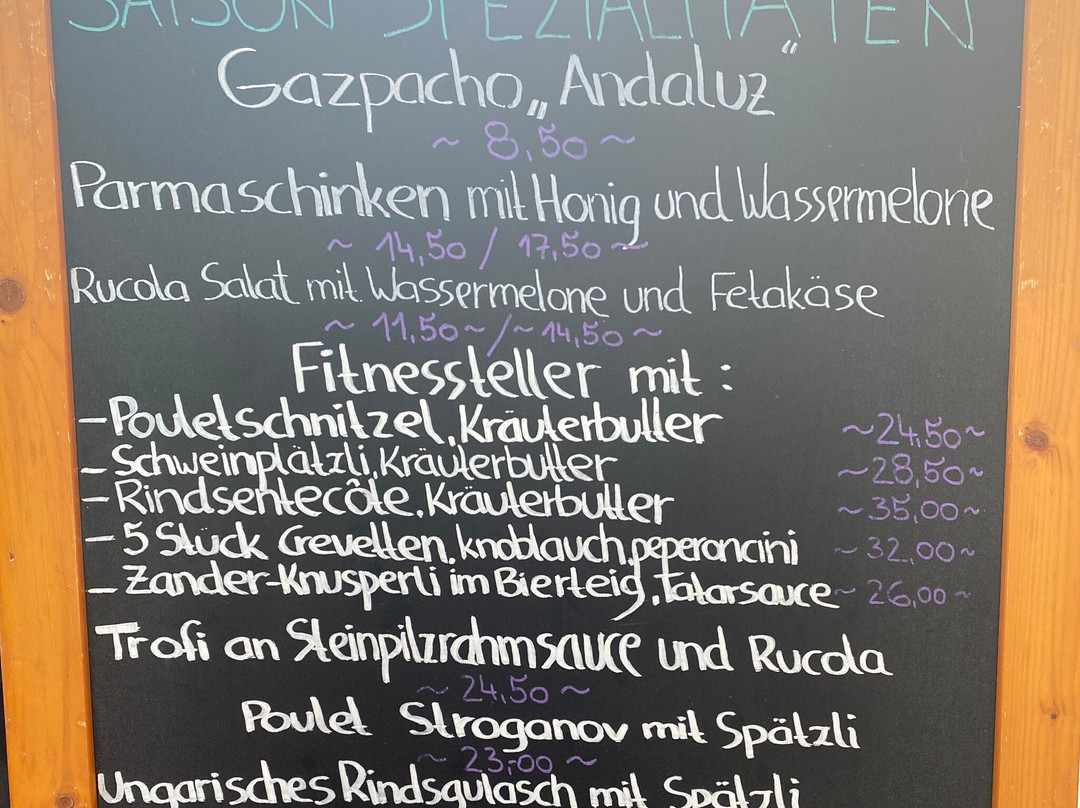 SAISON SPEZIALITÄTEN
Gazpacho „Andaluz“
~ 8,50 ~
Parmaschinken mit Honig und Wassermelone
~ 14,50 / 17,50 ~
Rucola Salat mit Wassermelone und Fetakäse
~ 11,50 ~ / ~ 14,50 ~
Fitnessteller mit :
- Pouletschnitzel, Kräuterbutter ~ 24,50 ~
- Schweinplätzli, Kräuterbutter ~ 28,50 ~
- Rindsentecôte, Kräuterbutter ~ 35,00 ~
- 5 Stück Crevetten, knoblauch, peperoncini ~ 32,00 ~
- Zander-Knusperli im Bierteig, Tatarsauce ~ 26,00 ~
Trofi an Steinpilzrahmsauce und Rucola
~ 24,50 ~
Poulet Stroganov mit Spätzli
~ 23,00 ~
Ungarisches Rindsgulasch mit Spätzli